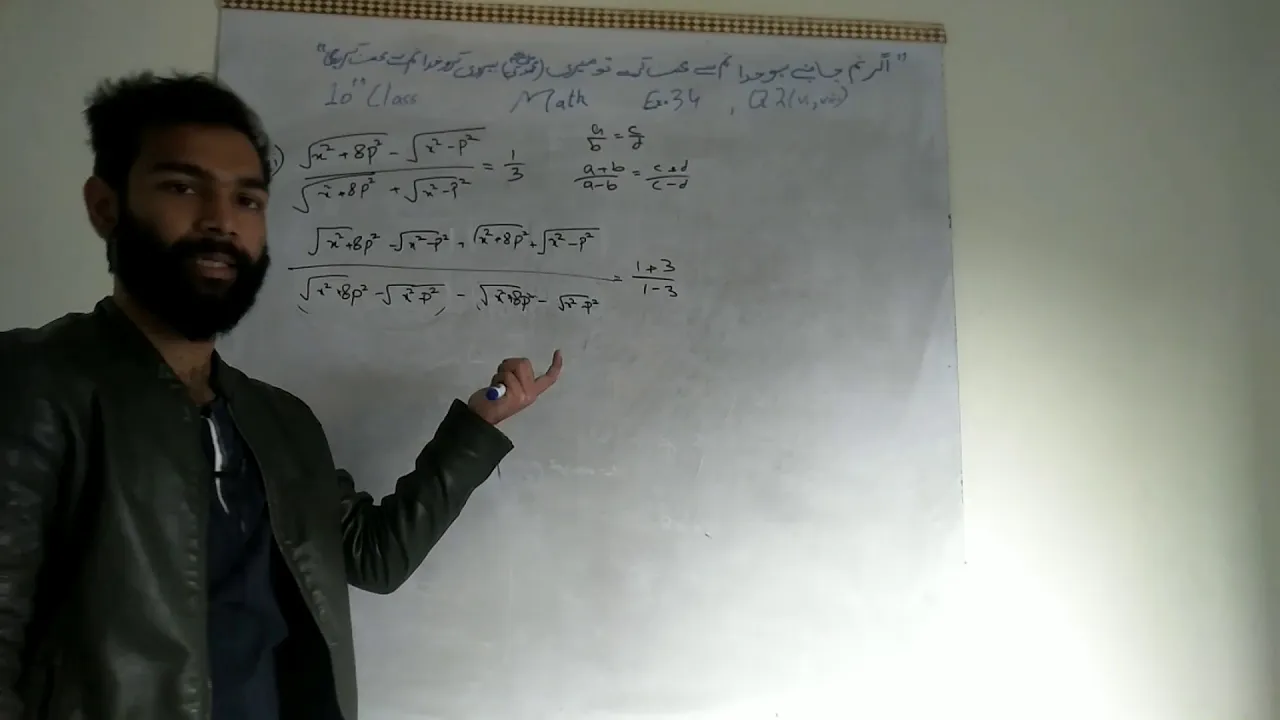 "اگر تم چاہتے ہو خدا تم سے محبت کرے تو میری () پیروی کرو خدا تم سے محبت کرے گا"
10th Class Math Ex. 3.4, Q2(vi, vii)
) (√(x²+8p²) - √(x²-p²)) / (√(x²+8p²) + √(x²-p²)) = 1/3
a/b = c/d
(a+b)/(a-b) = (c+d)/(c-d)
(√(x²+8p²) - √(x²-p²) + √(x²+8p²) + √(x²-p²)) / (√(x²+8p²) - √(x²-p²) - √(x²+8p²) - √(x²-p²)) = (1+3)/(1-3)